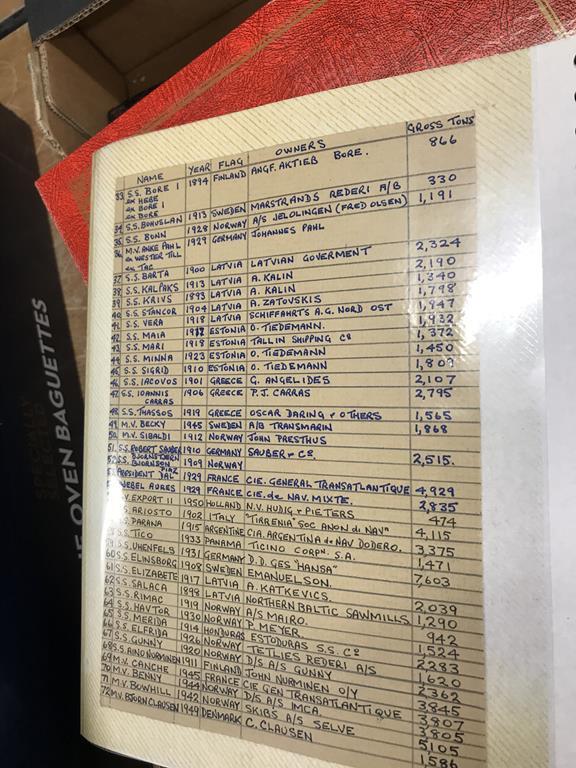 NAME YEAR FLAG OWNERS GROSS TONS
33 S.S. BORE I 1894 FINLAND ANGF. AKTIEB BORE. 866
ex HEBE
ex BORE I
ex BORE
34 S.S. BOHUSLAN 1913 SWEDEN MARSTRANDS REDERI A/B 330
35 S.S. BONN 1928 NORWAY A/S JELOLINGEN (FRED OLSEN) 1,191
36 M.V. ANKE PAHL 1929 GERMANY JOHANNES PAHL
ex WESTER TILL
ex TAC
37 S.S. BARTA 1900 LATVIA LATVIAN GOVERMENT 2,324
38 S.S. KALPAKS 1913 LATVIA A. KALIN 2,190
39 S.S. KRIVS 1893 LATVIA A. KALIN 1,340
40 S.S. STANCOR 1904 LATVIA A. ZATOVSKIS 1,798
41 S.S. VERA 1918 LATVIA SCHIFFAHRTS A.G. NORD OST 1,947
42 S.S. MAIA ESTONIA O. TIEDEMANN. 1,932
43 S.S. MARI 1918 ESTONIA TALLIN SHIPPING Co 1,372
44 S.S. MINNA 1923 ESTONIA O. TIEDEMANN 1,450
45 S.S. SIGRID 1910 ESTONIA O. TIEDEMANN 1,809
46 S.S. IACOVOS 1901 GREECE G. ANGELIDES 2,107
47 S.S. IOANNIS CARRAS 1906 GREECE P.J. CARRAS 2,795
48 S.S. THASSOS 1919 GREECE OSCAR DARING & OTHERS 1,565
49 M.V. BECKY 1945 SWEDEN A/B TRANSMARIN 1,868
50 M.V. SIBALDI 1912 NORWAY JOHN PRESTHUS
51 S.S. ROBERT SAUBER 1910 GERMANY SAUBER & Co.
52 S.S. BJORNSTJERN BJORNSON 1909 NORWAY 2,515.
PRESIDENT DAL PIAZ 1929 FRANCE CIE. GENERAL TRANSATLANTIQUE 4,929
DJEBEL AURES 1929 FRANCE CIE. de NAV. MIXTE. 2,835
M.V. EXPORT II 1950 HOLLAND N.V. HUDIG & PIETERS 474
S.S. ARIOSTO 1902 ITALY "TIRRENIA" SOC ANON di NAV" 4,115
S.S. PARANA 1915 ARGENTINE CIA. ARGENTINA de NAV DODERO. 3,375
S.S. TICO 1933 PANAMA TICINO CORPN. S.A. 1,471
59 S.S. UHENFELS 1931 GERMANY D.D. GES "HANSA" 7,603
60 S.S. ELINSBORG 1908 SWEDEN EMANUELSON.
61 S.S. ELIZABETE 1917 LATVIA A. KATKEVICS. 2,039
62 S.S. SALACA 1899 LATVIA NORTHERN BALTIC SAWMILLS 1,290
63 S.S. RIMAC 1919 NORWAY A/S MAIRO. 942
64 S.S. HAVTOR 1930 NORWAY P. MEYER. 1,524
65 S.S. MERIDA 1914 HONDURAS ESTODURAS S.S. Co 2283
66 S.S. ELFRIDA 1926 NORWAY TETLIES REDERI A/S 1,620
67 S.S. GUNNY 1920 NORWAY D/S A/S GUNNY 2362
68 S.S. AINO NURMINEN 1911 FINLAND JOHN NURMINEN O/Y 3845
69 M.V. CANCHE 1945 FRANCE CIE GEN TRANSATLANTIQUE 3807
70 M.V. BENNY 1944 NORWAY D/S A/S IMCA. 3805
71 M.V. BOWHILL 1942 NORWAY SKIBS A/S SELVE 5105
72 M.V. BJORN CLAUSEN 1949 DENMARK C. CLAUSEN 1,586
OVEN BAGUETTES